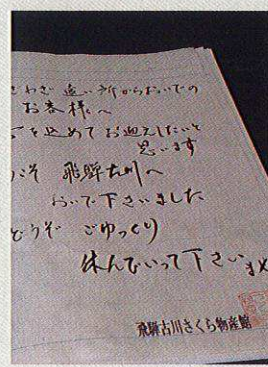 わざ遠い所からおいでの
お客様へ
を込めてお迎えしたいと
思います
こそ 飛騨古川へ
おいで下さいました
どうぞ ごゆっくり
休んでいって下さいませ
飛騨古川さくら物産館